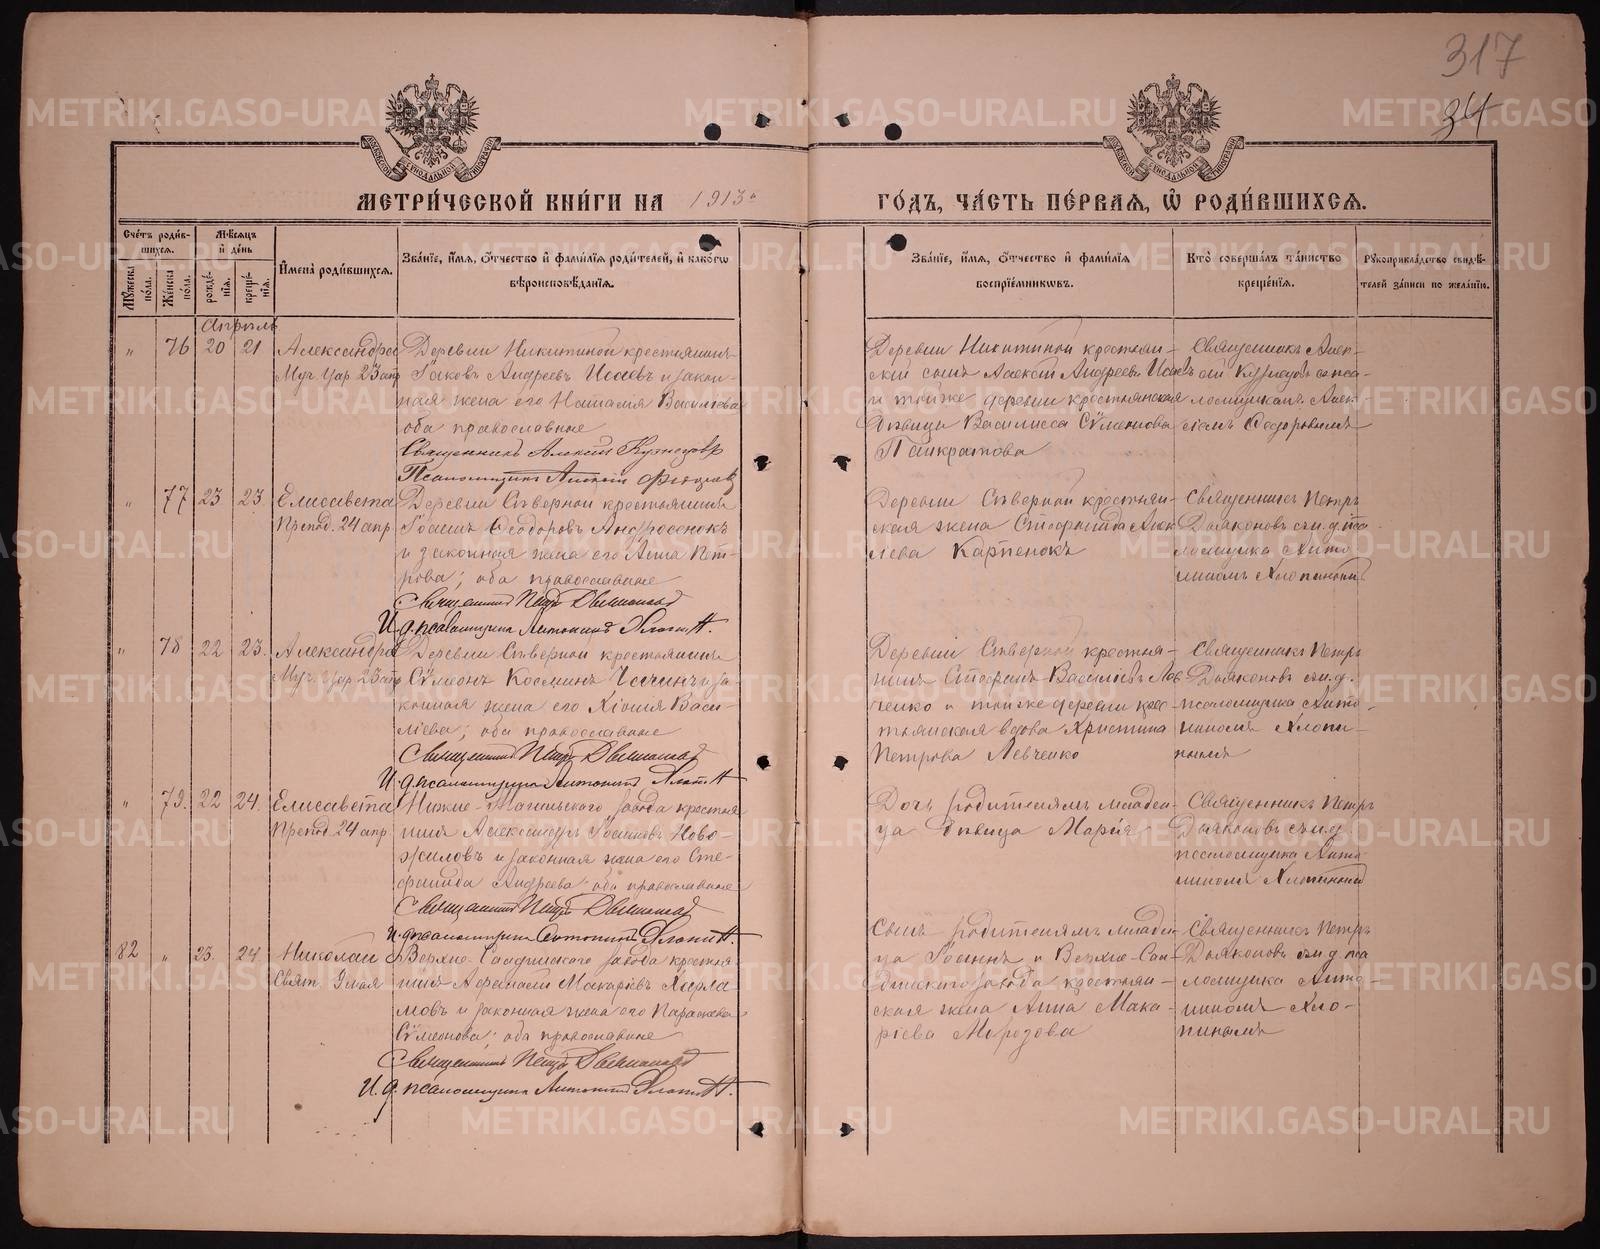 317
34
МЕТРИ́ЧЕСКОЙ КНИ́ГИ НА 1913 ГО́ДЪ, ЧА́СТЬ ПЕ́РВАѦ, Ѽ РОДИ́ВШИХСѦ.
Сче́тъ роди́в-
шихсѧ.
Мꙋ́жеска по́ла.
Же́нска по́ла.
Мѣ́сѧцъ
и҆ де́нь
рожде́-
нїѧ.
креще́-
нїѧ.
И҆мена̀ роди́вшихсѧ.
Зва́нїе, и҆́мѧ, ѻ҆́тчество и҆ фами́лїѧ роди́телей, и҆ како́гѡ
вѣроисповѣ́данїѧ.
Зва́нїе, и҆́мѧ, ѻ҆́тчество и҆ фами́лїѧ
воспрїе́мникѡвъ.
Кто̀ соверша́лъ та́инство
креще́нїѧ.
Рꙋкоприкла́дство свидѣ́-
телей за́писи по жела́нїю.
Апрѣль
" 76 20 21
Александра
Муч. Цар. 23 апр
Деревни Никитиной крестьянинъ
Іаковъ Андреевъ Исаевъ и закон-
ная жена его Наталія Васильева
оба православные
Священникъ Алексій Кузнецовъ
Псаломщикъ Алексій
Деревни Никитиной крестьян-
скій сынъ Алексій Андреевъ Исаевъ
и тойже деревни крестьянская
дѣвица Василисса Сѵмеонова
Панкратова
Священникъ Алек-
сій Кузнецовъ съ пса-
ломщикомъ Алек-
сіемъ Ѳедоровымъ
" 77 23 23
Елисавета
Препод. 24 апр.
Деревни Сѣверной крестьянинъ
Іоаннъ Ѳеодоровъ Андросенокъ
и законная жена его Анна Пет-
рова; оба православные
Священникъ Петръ Дьяконовъ
И. д. псаломщика Антонинъ Хлопинъ.
Деревни Сѣверной крестьян-
ская жена Стефанида Алек
сіева Карпенокъ
Священникъ Петръ
Дьяконовъ съ и. д. пса-
ломщика Анто-
ниномъ Хлопинымъ
" 78 22 23.
Александра
Муч. Цар. 23 апр
Деревни Сѣверной крестьянинъ
Сѵмеонъ Косминъ и за-
конная жена его Хіонія Васи-
ліева; оба православные
Священникъ Петръ Дьяконовъ
И. д. псаломщика Антонинъ Хлопинъ
Деревни Сѣверной крестья-
нинъ Стефанъ Васильевъ Лев
ченко и тойже деревни крес-
тьянская вдова Христина
Петрова Левченко
Священникъ Петръ
Дьяконовъ съ и. д.
псаломщика Анто-
ниномъ Хлопи-
нымъ
" 79. 22 24.
Елисавета
Препод. 24 апр.
Нижне-Тагильскаго завода крестья
нинъ Александръ Іоанновъ Ново-
жиловъ и законная жена его Сте-
фанида Андреева; оба православные
Священникъ Петръ Дьяконовъ
И. д. псаломщика Антонинъ Хлопинъ.
Дочь родителямъ младен-
ца дѣвица Марія
Священникъ Петръ
Дьяконовъ съ и. д.
псаломщика Анто
ниномъ Хлопинымъ
82 " 23. 24
Николай
Свят. 9 мая
Верхне-Салдинскаго завода крестья
нинъ Афанасій Макаріевъ Харла
мовъ и законная жена его Параскева
Сѵмеонова; оба православные
Священникъ Петръ Дьяконовъ
И. д. псаломщика Антонинъ Хлопинъ.
Сынъ родителямъ младен
ца Іоаннъ и Верхне-Сал-
динскаго завода крестьян-
ская жена Анна Мака-
ріева Морозова
Священникъ Петръ
Дьяконовъ съ и. д. пса
ломщика Анто-
ниномъ Хло-
пинымъ
METRIKI.GASO-URAL.RU